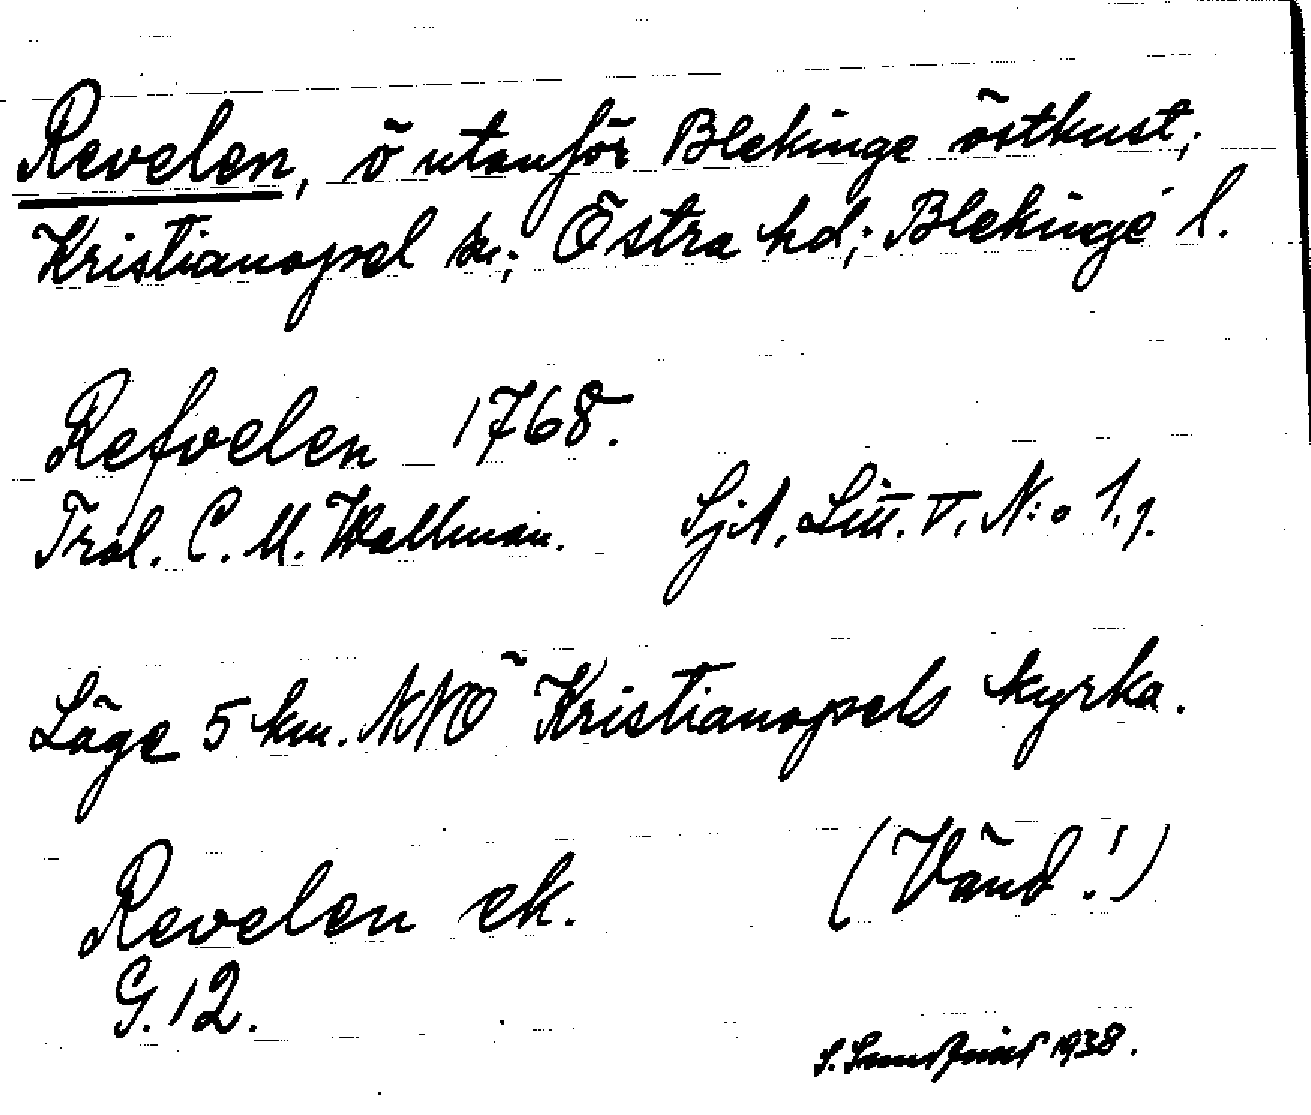 Revelen, ö utanför Blekinge östkust;
Kristianopel sn; Östra hd; Blekinge l.
Refvelen 1768.
C. M. Wallman. SjA. Litt. V. N:o 1,
Läge 5 km. NNO Kristianopels kyrka.
Revelen ek. (Vänd!)
G. 12.
S. 1938.